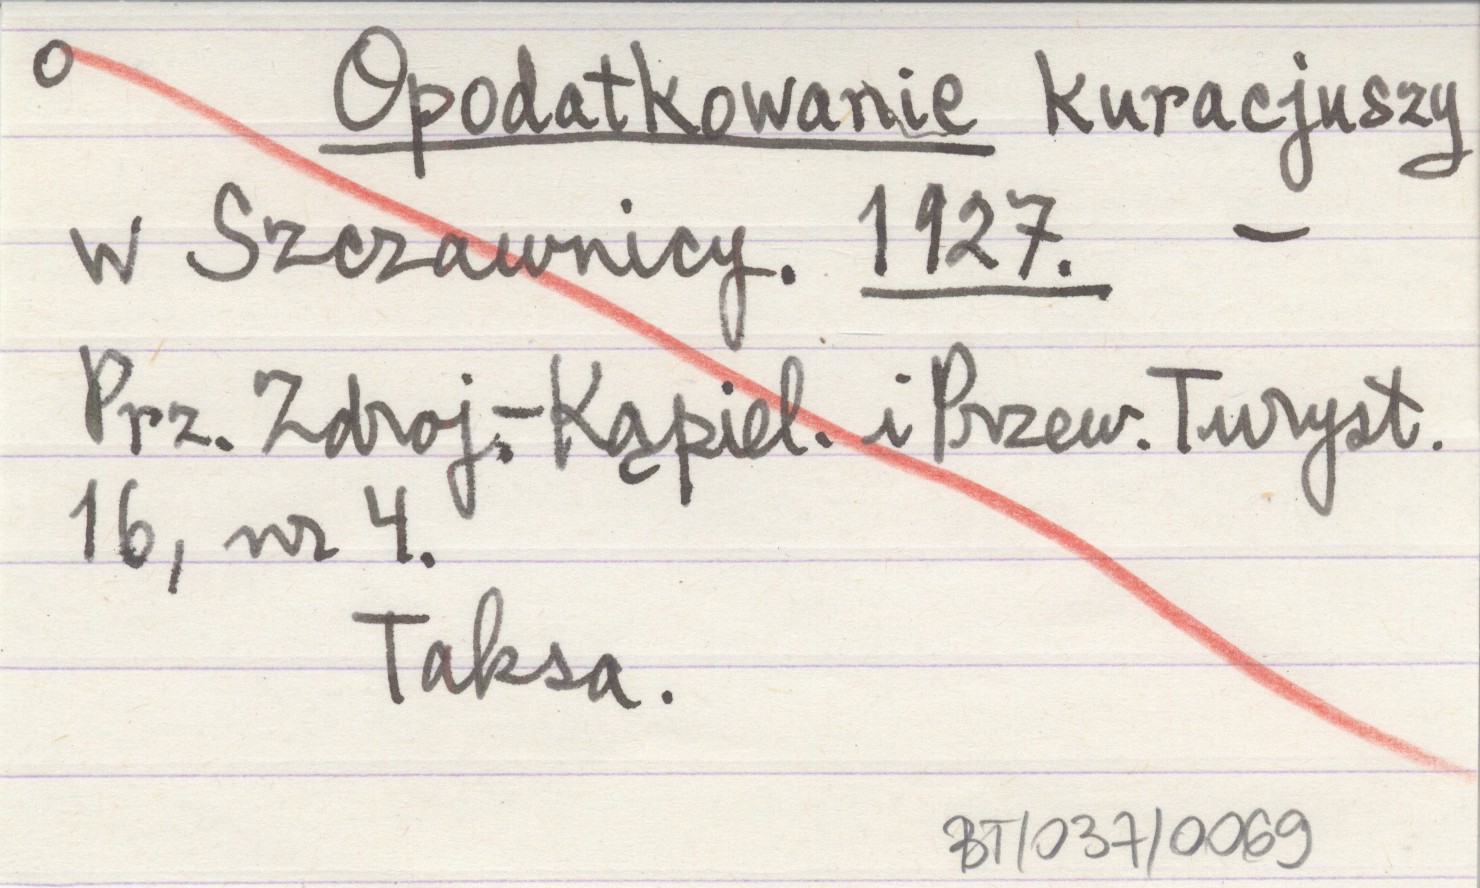 o Opodatkowanie kuracjuszy
w Szczawnicy. 1927. –
Prz. Zdroj.-Kąpiel. i Przew. Turyst.
16, nr 4.
Taksa.
BT/037/0069